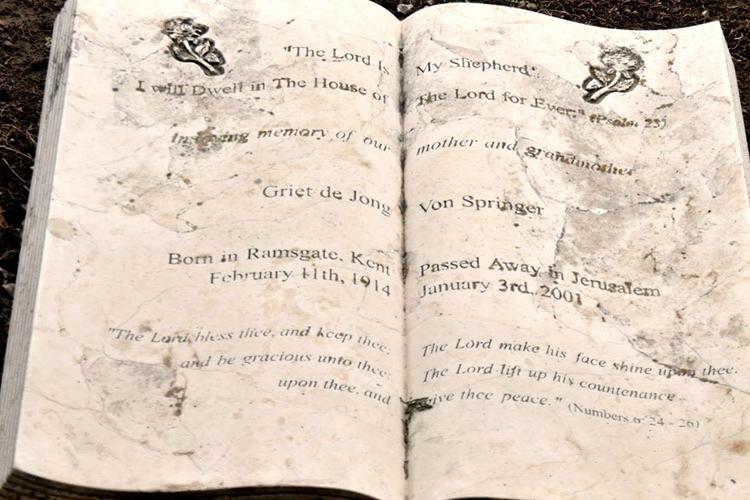 "The Lord Is My Shepherd".
I will Dwell in The House of The Lord for Ever." (Psalm 23)
In loving memory of our mother and grandmother
Griet de Jong Von Springer
Born in Ramsgate, Kent Passed Away in Jerusalem
February 11th, 1914 January 3rd, 2001
"The Lord bless thee, and keep thee. The Lord make his face shine upon thee.
and be gracious unto thee. The Lord lift up his countenance
upon thee, and give thee peace." (Numbers 6: 24 - 26)